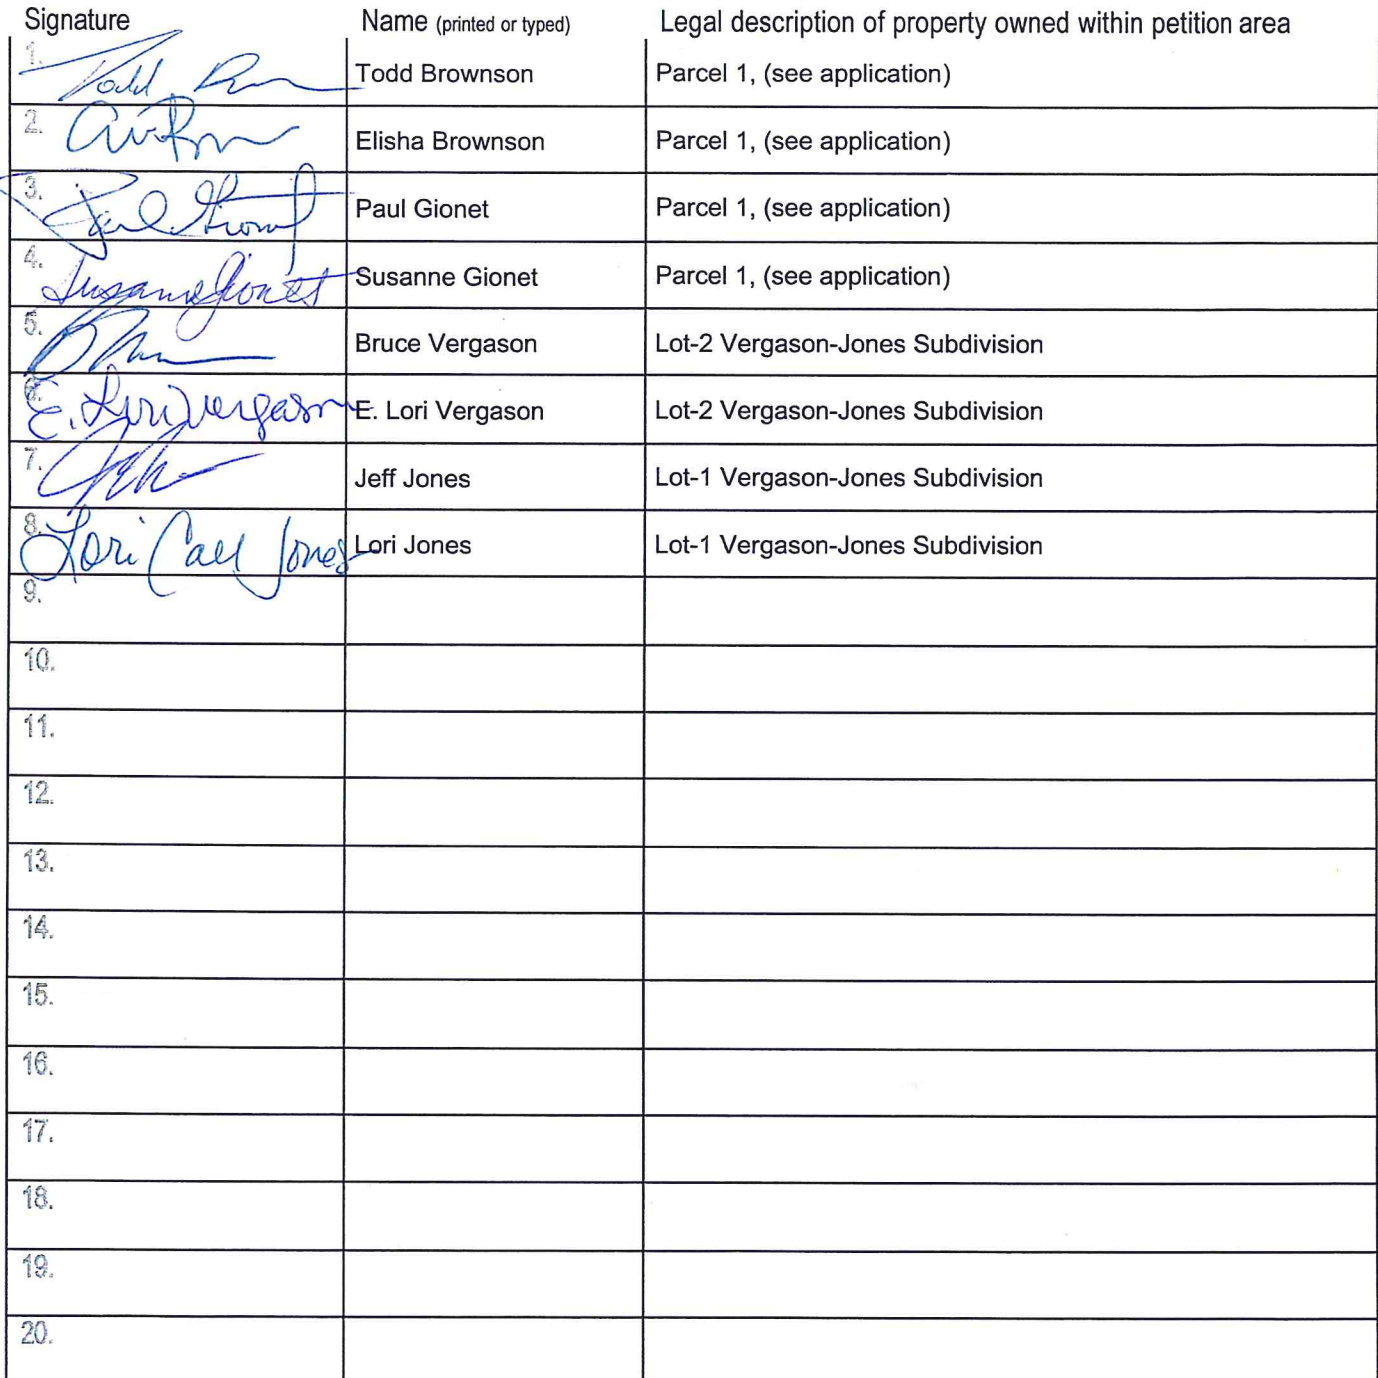 Signature Name (printed or typed) Legal description of property owned within petition area
1. Todd Todd Brownson Parcel 1, (see application)
2. Elisha Brownson Parcel 1, (see application)
3. Paul Gionet Paul Gionet Parcel 1, (see application)
4. Susanne Gionet Susanne Gionet Parcel 1, (see application)
5. Bruce Vergason Lot-2 Vergason-Jones Subdivision
6. E. Lori Vergason E. Lori Vergason Lot-2 Vergason-Jones Subdivision
7. Jeff Jones Lot-1 Vergason-Jones Subdivision
8. Lori Call Jones Lori Jones Lot-1 Vergason-Jones Subdivision
9.
10.
11.
12.
13.
14.
15.
16.
17.
18.
19.
20.